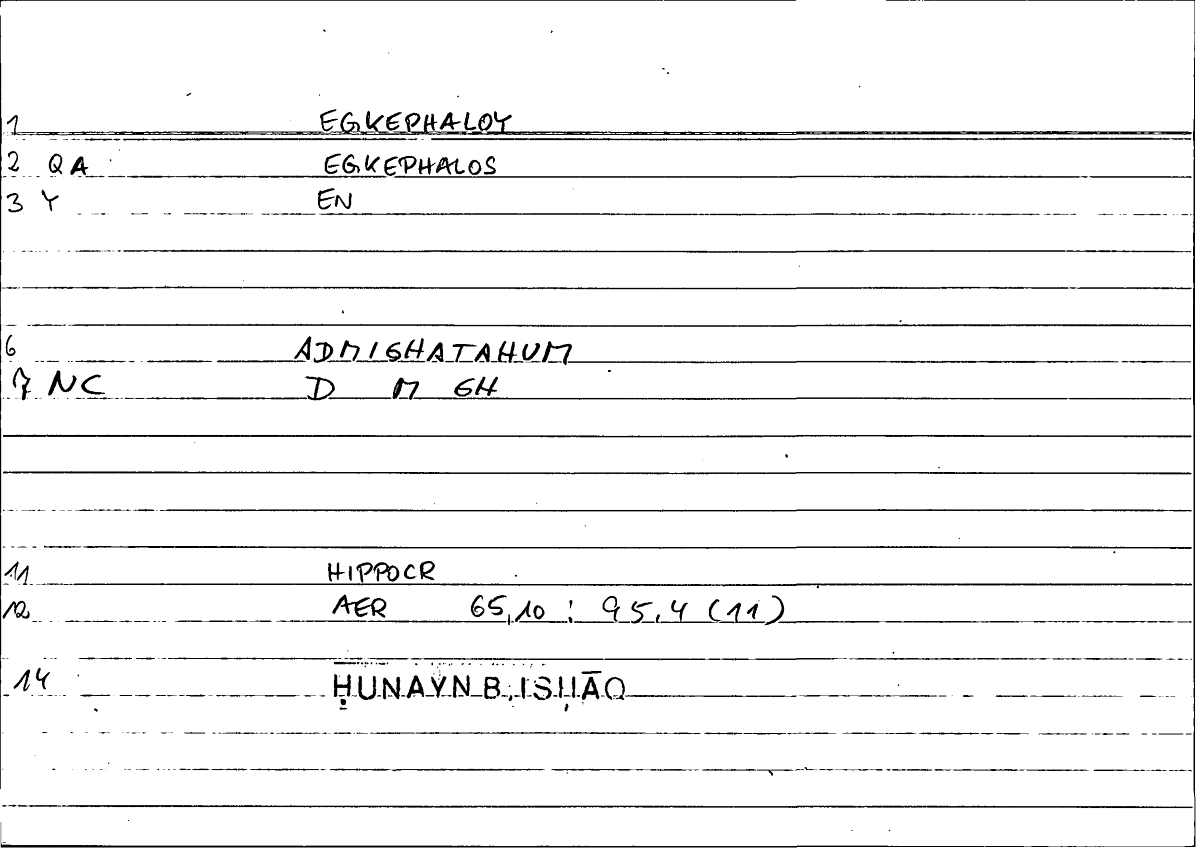 1 EGKEPHALOY
2 QA EGKEPHALOS
3 Y EN
6 ADMIGHATAHUM
7 NC D M GH
11 HIPPOCR
12 AER 65,10 : 95,4 (11)
14 ḤUNAYN B. ISḤĀQ